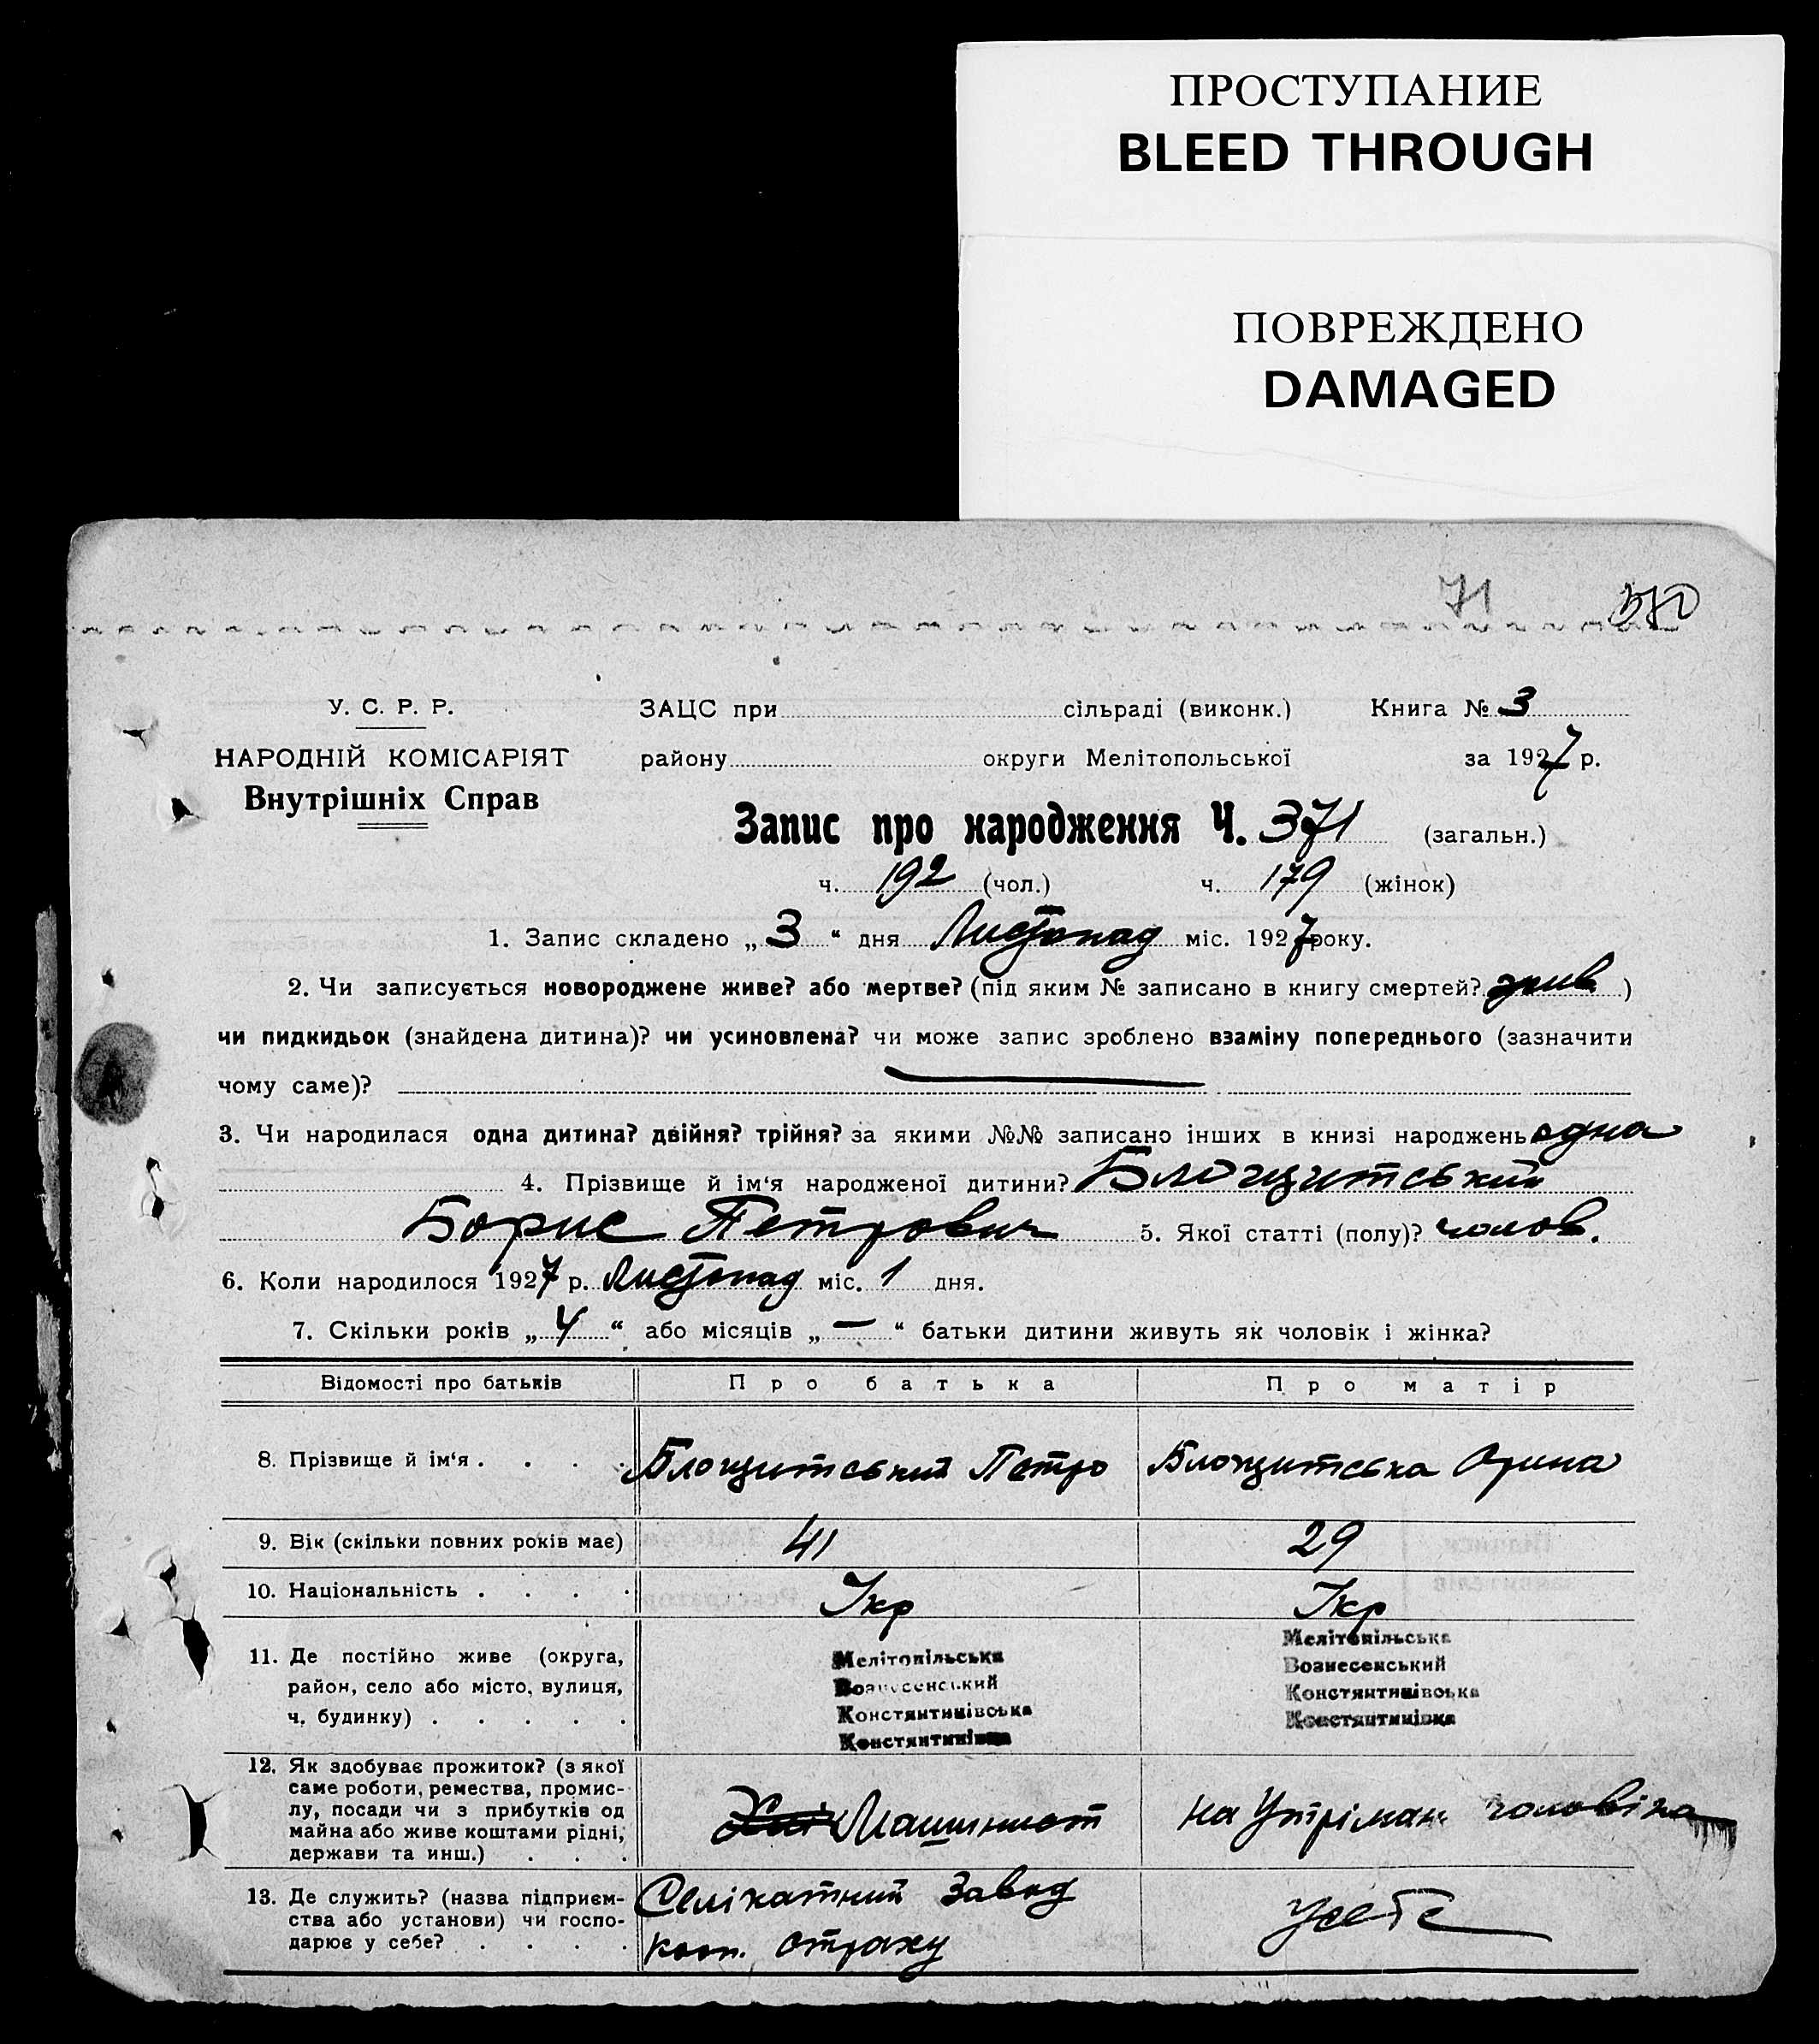 ПРОСТУПАНИЕ
BLEED THROUGH
ПОВРЕЖДЕНО
DAMAGED
71
У. С. Р. Р. ЗАЦС при сільраді (виконк.) Книга № 3
НАРОДНІЙ КОМІСАРІЯТ району округи Мелітопольської за 1927 р.
Внутрішніх Справ
Запис про народження Ч. 371 (загальн.)
ч. 192 (чол.) ч. 179 (жінок)
1. Запис складено „ 3 “ дня Листопад міс. 1927 року.
2. Чи записується новороджене живе? або мертве? (під яким № записано в книгу смертей? жив )
чи пидкидьок (знайдена дитина)? чи усиновлена? чи може запис зроблено взаміну попереднього (зазначити
чому саме)?
3. Чи народилася одна дитина? двійня? трійня? за якими №№ записано інших в книзі народжень одна
4. Прізвище й ім‘я народженої дитини? Блощитський
Борис Петрович 5. Якої статті (полу)? чолов.
6. Коли народилося 1927 р. Листопад міс. 1 дня.
7. Скільки років „ 4 “ або місяців „ — “ батьки дитини живуть як чоловік і жінка?
Відомості про батьків Про батька Про матір
8. Прізвище й ім‘я . . . . Блощитський Петро Блощитська Орина
9. Вік (скільки повних років має) 41 29
10. Національність . . . . Укр Укр
11. Де постійно живе (округа, Мелітопільська Мелітопільська
район, село або місто, вулиця, Вознесенський Вознесенський
ч. будинку) . . . . . Константинівська Константинівська
Константинівка Константинівка
12. Як здобуває прожиток? (з якої
саме роботи, ремества, промис-
лу, посади чи з прибутків од Машиніст На Утріман чоловіка
майна або живе коштами рідні,
держави та инш.) . . .
13. Де служить? (назва підприєм- Селікатний Завод
ства або установи) чи госпо- У себе
дарює у себе? . . . . страху